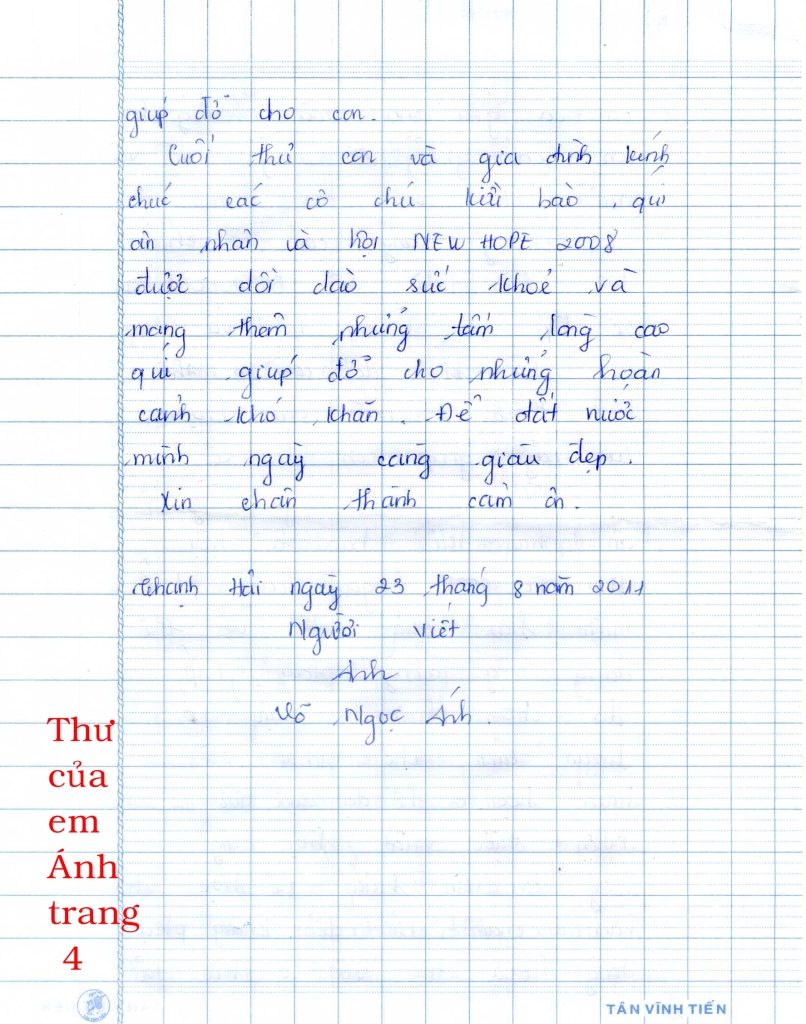 giúp đỡ cho con.
Cuối thư con và gia đình kính
chúc các cô chú kiều bào, quí
ân nhân và hội NEW HOPE 2008
được dồi dào sức khoẻ và
mang thêm những tấm lòng cao
quí giúp đỡ cho những hoàn
cảnh khó khăn. Để đất nước
mình ngày càng giàu đẹp.
Xin chân thành cảm ơn.
Thạnh Hải ngày 23 tháng 8 năm 2011
Người viết
Ánh
Võ Ngọc Ánh.
Thư
của
em
Ánh
trang
4
TÂN VĨNH TIẾN